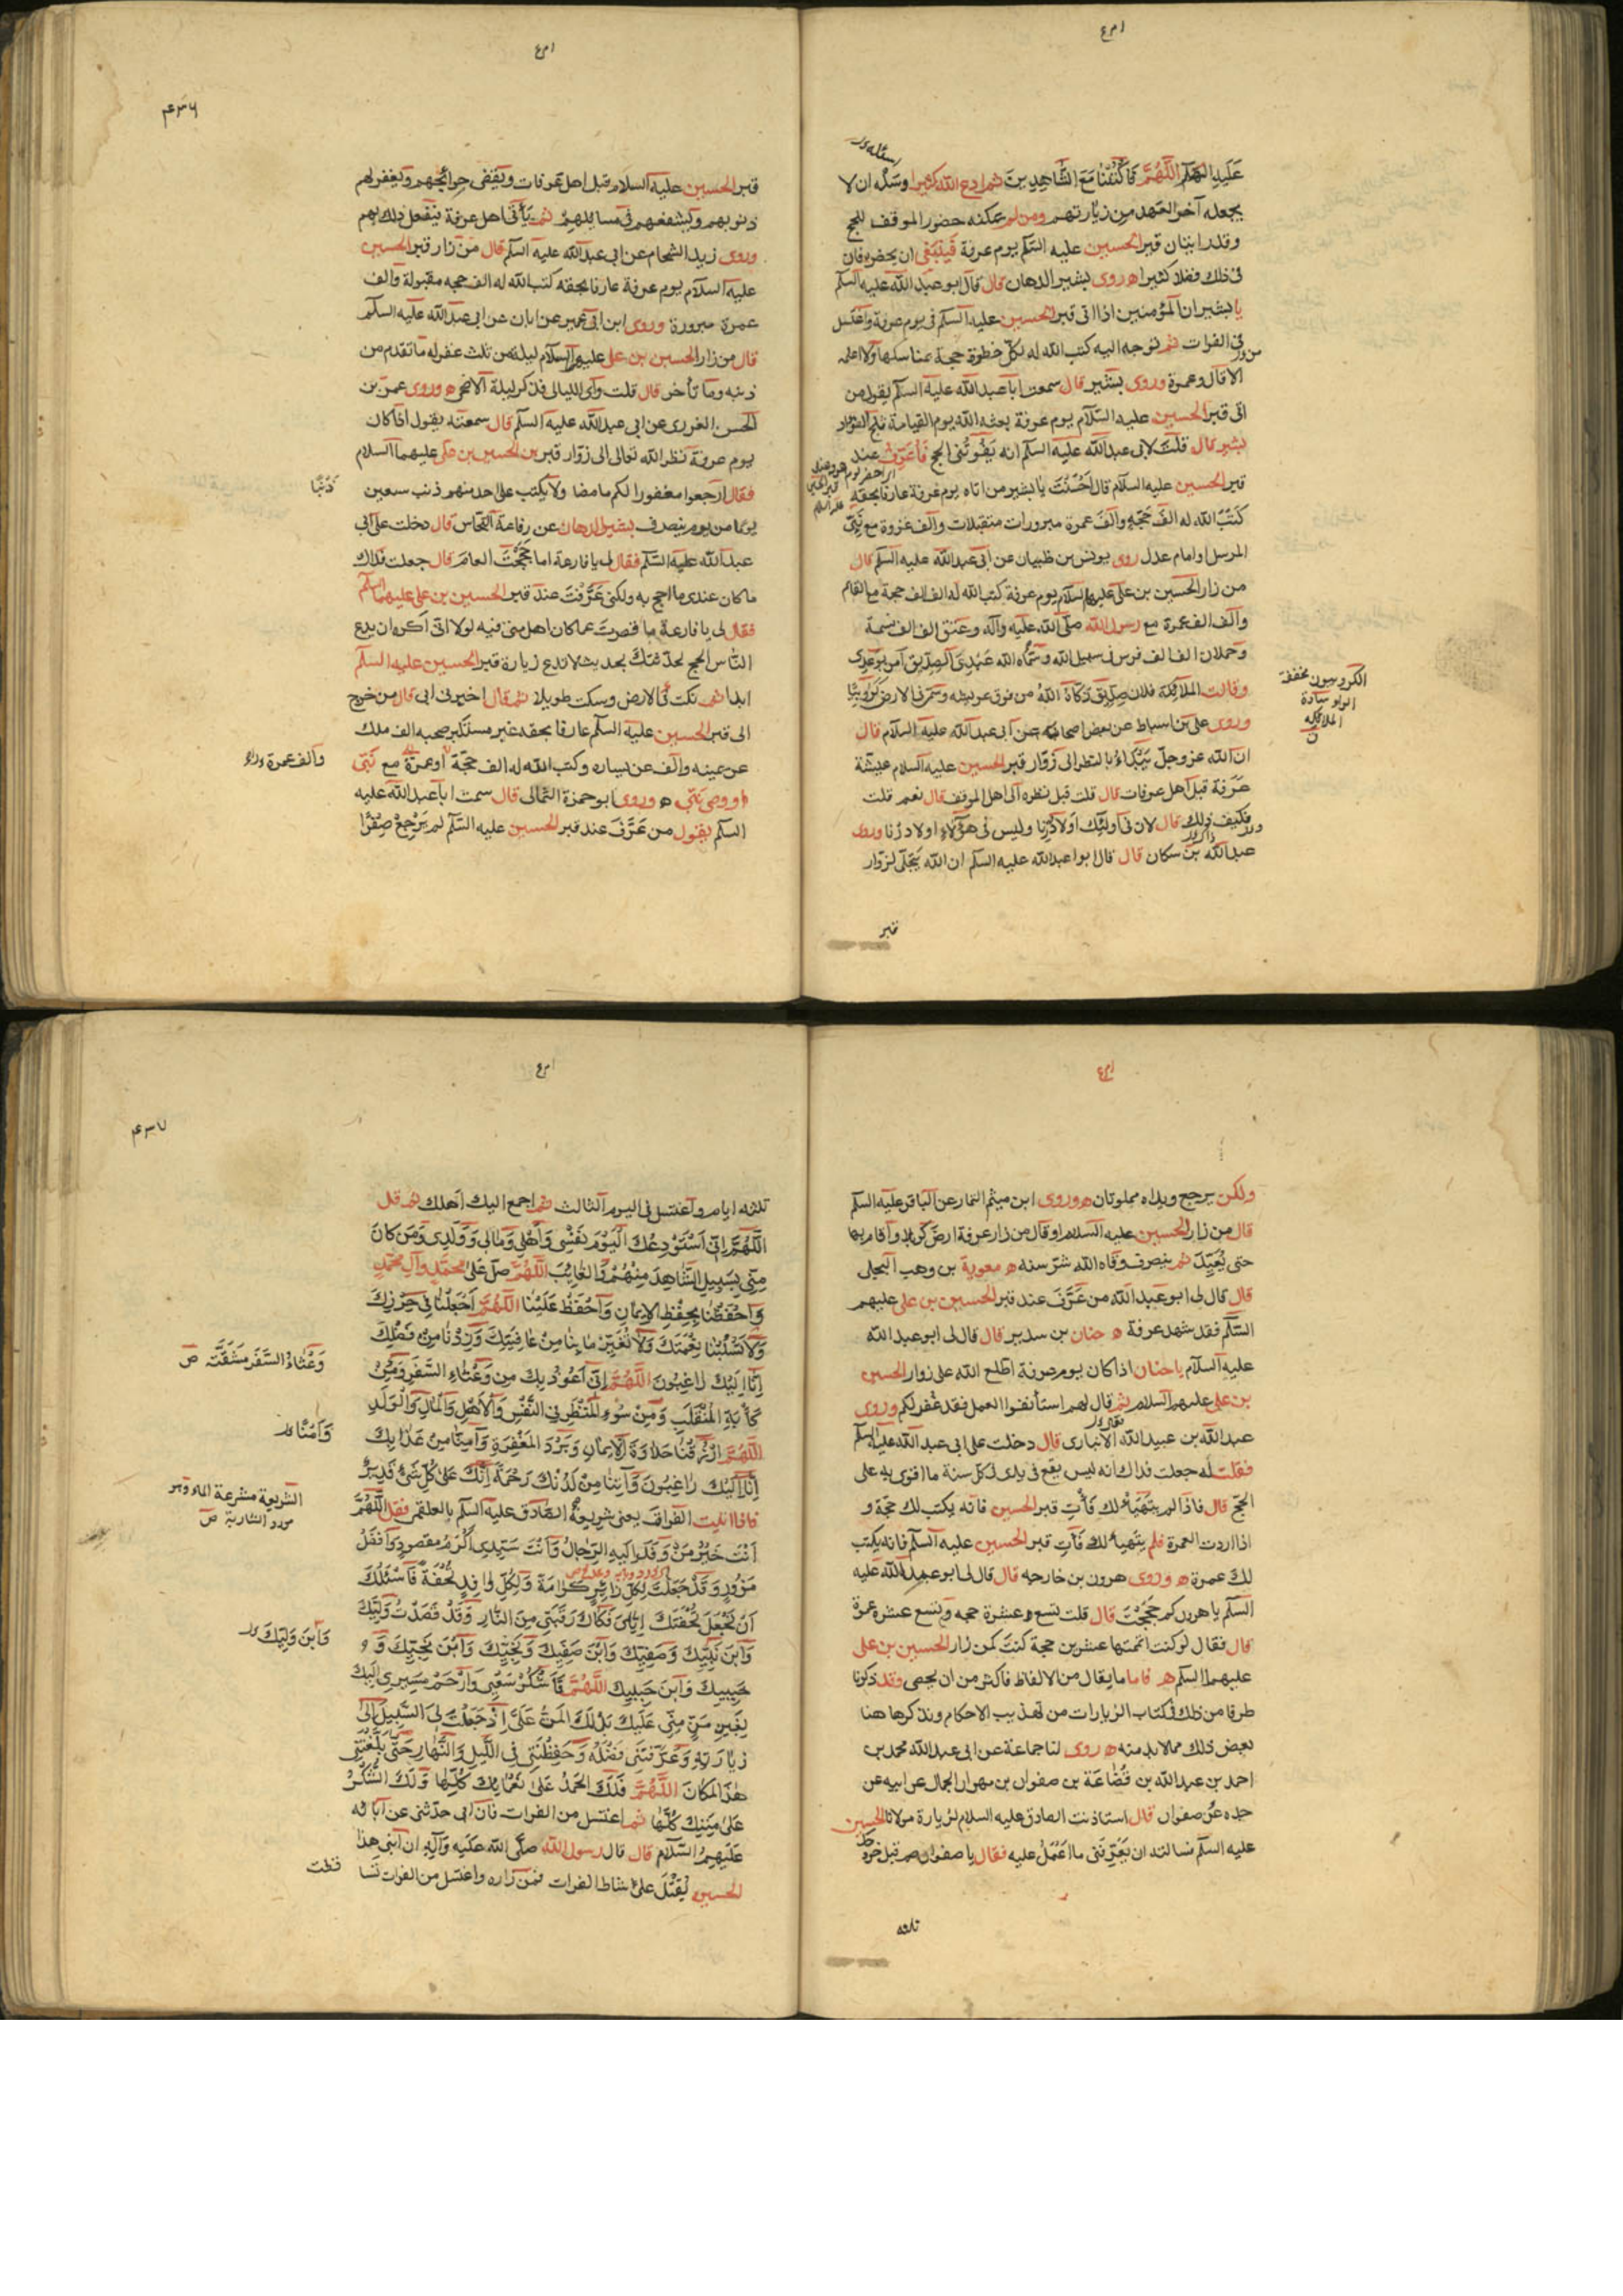 عَلَيهِ السَّلَمُ اللَّهُمَّ فَاكْتُبْنَا مَعَ الشَّاهِدِينَ ثم ادع الله كثيرا وسله ان لا
يجعله آخر العهد من زيارتهم ومن لم يمكنه حضور الموقف للحج
وقدر اتيان قبر الحسين عليه السلم يوم عرفة فينبغى ان يحضره فان
فى ذلك فضلا كثيرا ه روى بشير الدهان قال قال ابو عبد الله عليه السلم
يا بشير ان المؤمنين اذا اتى قبر الحسين عليه السلم فى يوم عرفة واغتسل
فى الفرات ثم توجه اليه كتب الله له بكل خطوة حجة بمناسكها ولا اعلمه
الا قال وعمرة وروى بشير قال سمعت ابا عبد الله عليه السلم يقول من
اتى قبر الحسين عليه السلام يوم عرفة بعثه الله يوم القيامة ثلج الفؤاد
بشير قال قلت لابى عبد الله عليه السلم انه يَفُوتُنى الحج فَأُعَرِّفُ عند
قبر الحسين عليه السلام قال اَحْسَنْتَ يا بشير من اتاه يوم عرفة عارفا بحقه
كتب الله له الف حجة والف عمرة مبرورات متقبلات والف غزوة مع نبى
المرسل او امام عدل روى يونس بن ظبيان عن ابى عبد الله عليه السلم قال
من زار الحسين بن على عليه السلام يوم عرفة كتب الله له الف الف حجة مع القائم
والف الف عمرة مع رسول الله صلى الله عليه وآله وعتق الف الف نسمة
وحملان الف الف فرس فى سبيل الله وسماه الله عَبْدِىَ الصِدّيق آمن بوعدى
وقالت الملائكة فلان صِدّيق زكاه اللهُ من فوق عرشه وسمى فى الارض كَرُوبِيًّا
وروى على بن اسباط عن بعض اصحابه عن ابى عبد الله عليه السلام قال
ان الله عز وجل يبتداء بالنظر الى زوار قبر الحسين عليه السلام عشية
عرفة قبل اهل عرفات قال قلت قبل نظره الى اهل الموقف قال نعم قلت
فكيف ذلك قال لان فى اولئِكَ اَولادُ زنا وليس فى هؤلاءِ اولاد زنا وروى
عبد الله بن سكان قال قال ابوا عبد الله عليه السلم ان الله يَتَجَلّى لزوّار
الكروبيون مخففة
سادة
الملائكه
قبر
قبر الحسين عليه السلام قبل اهل عرفات ويقضى حوائجهم ويغفر لهم
ذنوبهم ويشفعهم فى مسائلهم ثم يأتى اهل عرفة فيفعل ذلك بهم
وروى زيد الشحام عن ابى عبد الله عليه السلم قال من زار قبر الحسين
عليه السلام يوم عرفة عارفا بحقه كتب الله له الف حجه مقبولة والف
عمرة مبرورة وروى ابن ابى عمير عن ابان عن ابى عبد الله عليه السلم
قال من زار الحسين بن على عليهما السلام ليلة من ثلث غفر له ما تقدم من
ذنبه وما تأخر قال قلت واى الليالى فذكر ليلة الاضحى ه وروى عمر بن
الحسن عن ابى عبد الله عليه السلم قال سمعته يقول اذا كان
يوم عرفة نظر الله تعالى الى زوّار قبر الحسين بن على عليهما السلام
فقال ارجعوا مغفورا لكم ما مضا ولا يكتب على احد منهم ذنب سبعين
يوما من يوم ينصرف بشير الدهان عن رفاعة النحاس قال دخلت على ابى
عبد الله عليه السّلم فقال لى يا رفاعة اما حَجَجْتَ العام قال جعلت فداك
ما كان عندى ما احج به ولكنى عَرَّفْتُ عند قبر الحسين بن على عليهما السلم
فقال لى يا رفاعة ما قصرت عما كان اهل منى فيه لولا انى اكره ان يدع
الناس الحج لحدثتك بحديث لا تدع زيارة قبر الحسين عليه السلم
ابدا ثم نكت فى الارض وسكت طويلا ثم قال اخبرنى ابى قال من خرج
الى قبر الحسين عليه السلم عارفا بحقه غير مستكبر صحبه الف ملك
عن يمينه والف عن يساره وكتب الله له الف حجّة او عمرة مع نَبّى
او وصى نبى ه وروى ابو حمزة الثمالى قال سمعت ابا عبد الله عليه
السلم يقول من عَرَّفَ عند قبر الحسين عليه السّلم لم يَرْجِعْ صِفْرًا
ذَنْبًا
والف عمرة
ولكن يرجع ويداه مملوتان ه وروى ابن ميثم التمار عن الباقر عليه السلم
قال من زار الحسين عليه السلام او قال من زار عرفة ارض كربلا واقام بها
حتى يُعَيِّدَ ثم ينصرف وقاه الله شرّ سنه ه معوية بن وهب البجلى
قال قال لى ابو عبد الله من عَرَّفَ عند قبر الحسين بن على عليهم
السّلم فقد شهد عرفة ه حنان بن سدير قال قال لى ابو عبد الله
عليه السلام يا حنان اذا كان يوم عرفة اطلع الله على زوار الحسين
بن على عليهم السلام ثم قال لهم استأنفوا العمل فقد غفر لكم وروى
عبد الله بن عبيد الله الانبارى قال دخلت على ابى عبد الله عليه السلم
فقلت له جعلت فداك انه ليس يقع فى يدى كل سنة ما اقوى به على
الحجّ قال فاذا لم يتهيأ لك فَأْتِ قبر الحسين فانه يكتب لك حجّة و
اذا اردت العمرة فلم يتهيأ لك فَأتِ قبر الحسين عليه السلم فانه يكتب
لك عمرة ه وروى هرون بن خارجه قال قال لى ابو عبد الله عليه
السلم يا هرون كم حَجَجْتَ قال قلت تسع عشرة حجه وتسع عشرة عمرة
قال فقال لو كنت اتممتها عشرين حجة كنتَ كمن زار الحسين بن على
عليهما السلم ه فاما ما يقال من الالفاظ فأكثر من ان يحصى وقد ذكرنا
طرفا من ذلك فى كتاب الزيارات من تهذيب الاحكام ونذكرها هنا
بعض ذلك مما لابد منه ه روى لنا جماعة عن ابى عبد الله محمد بن
احمد بن عبد الله بن قُضَاعَة بن صفوان بن مهران الجمال عن ابيه عن
جده عن صفوان قال استاذنت الصادق عليه السلام لزيارة مولانا الحسين
عليه السلم فسالته ان يُعَرِّفَنى ما اَعْمَلُ عليه فقال يا صفوان صم قبل خروجك
ثلثه
ثلثه ايام واغتسل فى اليوم الثالث ثم اجمع اليك اهلك ثم قل
اللَّهُمَّ اِنّى اَسْتَوْدِعُكَ اَلْيَوْمَ نَفْسِى وَاَهْلِى وَمَالِى وَوَلَدِى وَمَن كانَ
مِنّى بِسَبِيلٍ الشَّاهِدَ مِنْهُمْ وَالغَائِبَ اللَّهُمَّ صَلِّ عَلى مُحَمَّدٍ وَآلِ مُحَمَّدٍ
وَاحْفَظْنَا بِحِفْظِ الاِيمانِ وَاحْفَظْ عَلَيْنَا اللَّهُمَّ اجْعَلْنَا فِى حِرْزِكَ
وَلاَ تَسْلُبْنَا نِعْمَتَكَ وَلاَ تُغَيِّرْ مَا بِنَا مِنْ عَافِيَتِكَ وَزِدْنَا مِنْ فَضْلِكَ
اِنَّا اِلَيْكَ رَاغِبُونَ اللَّهُمَّ اِنّى اَعُوذُ بِكَ مِنْ وَعْثَاءِ السَّفَرِ وَمِنْ
كَآبَةِ المُنْقَلَبِ وَمِنْ سُوءِ المَنْظَرِ فِى النَّفْسِ وَالاَهْلِ وَالْمَالِ وَالْوَلَدِ
اللَّهُمَّ ارْزُقْنَا حَلاَوَةَ الاِيمَانِ وَبَرْدَ المَغْفِرَةِ وَآمِنَّا مِنْ عَذَابِكَ
اِنَّا اِلَيْكَ رَاغِبُونَ وَآتِنَا مِنْ لَدُنْكَ رَحْمَةً اِنَّكَ عَلَى كُلِّ شَىْءٍ قَدِيرٌ
فاذا اتيت الفرات يعنى شريعة الصادق عليه السلم بالعلقمى فقل اللَّهُمَّ
اَنْتَ خَيْرُ مَنْ وَفَدَ اِلَيهِ الرِّجَالُ وَاَنْتَ سَيِّدِى اَكْرَمُ مَقصُودٍ وَاَفضَلُ
مَزُورٍ وَقَدْ جَعَلْتَ لِكُلِّ زَائِرٍ كَرَامَةً وَلِكُلِّ وَافِدٍ تُحْفَةً فَأَسْئَلُكَ
اَنْ تَجْعَلَ تُحْفَتَكَ اِيَّاىَ فَكَاكَ رَقَبَتِى مِنَ النَّارِ وَقَدْ قَصَدْتُ وَلِيَّكَ
وَابنَ نَبِيِّكَ وَصَفِيَّكَ وَابْنَ صَفِيِّكَ وَنَجِيَّكَ وَابْنَ نَجِيِّكَ وَ
حَبِيبَكَ وَابْنَ حَبِيبِكَ اللَّهُمَّ فَاشْكُرْ سَعْيِى وَارْحَمْ مَسِيرِى اِلَيْكَ
بِغَيرِ مَنٍّ مِنّى عَلَيْكَ بَلْ لَكَ المَنُّ عَلَىَّ اِذْ جَعَلْتَ لِىَ السَّبِيلَ اِلَى
زِيَارَتِهِ وَعَرَّفْتَنِى فَضْلَهُ وَحَفِظْتَنِى فِى اللَّيلِ وَالنَّهَارِ حَتّى بَلَّغْتَنِى
هَذَا المَكَانَ اللَّهُمَّ فَلَكَ الحَمْدُ عَلَى نَعْمَائِكَ كُلِّهَا وَلَكَ الشُّكْرُ
عَلَى مِنَنِكَ كُلِّهَا ثم اغتسل من الفرات فان ابى حدثنى عن آبائه
عَلَيهِمُ السَّلَامُ قال قال رسول الله صلّى الله عليه وآله ان ابنى هذا
الحسين يُقْتَلُ على شاطئ الفرات فمن زاره واغتسل من الفرات تسا
وَعْثَاءُ السَّفَرِ مَشَقَّتَه ص
وَآمَنَّا
الشريعة مشرعة الماء وهو
مورد الشاربة ص
وَابنَ وَلِيِّكَ
قطت